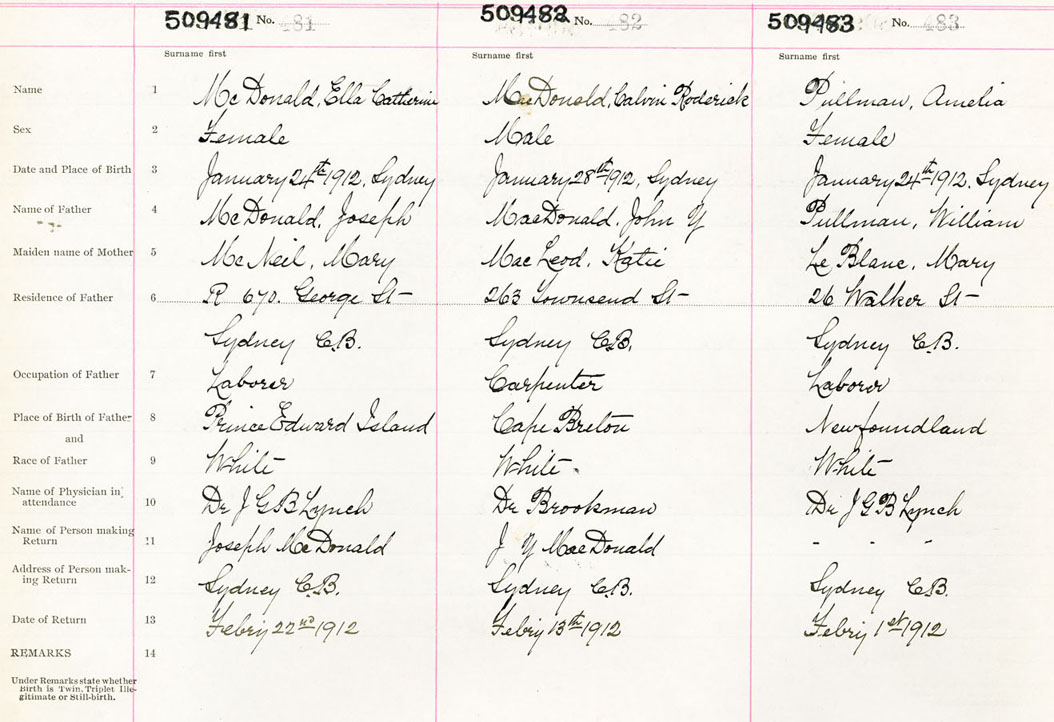 509481 No. 481 509482 No. 482 509483 No. 483
Surname first Surname first Surname first
Name 1 McDonald, Ella Catherine MacDonald, Calvin Roderick Pullman, Amelia
Sex 2 Female Male Female
Date and Place of Birth 3 January 24th 1912, Sydney January 28th 1912, Sydney January 24th 1912, Sydney
Name of Father 4 McDonald, Joseph MacDonald, John Y Pullman, William
Maiden name of Mother 5 McNeil, Mary MacLeod, Katie Le Blanc, Mary
Residence of Father 6 R 670. George St- 263 Townsend St- 26 Walker St-
Sydney C.B. Sydney C.B. Sydney C.B.
Occupation of Father 7 Laborer Carpenter Laborer
Place of Birth of Father 8 Prince Edward Island Cape Breton Newfoundland
and
Race of Father 9 White White. White
Name of Physician in
attendance 10 Dr J G B Lynch Dr Brookman Dr J G B Lynch
Name of Person making
Return 11 Joseph McDonald J Y MacDonald - - -
Address of Person mak-
ing Return 12 Sydney C.B. Sydney C.B. Sydney C.B.
Date of Return 13 Febry 22nd 1912 Febry 13th 1912 Febry 1st 1912
REMARKS 14
Under Remarks state whether
Birth is Twin. Triplet Ille-
gitimate or Still-birth.